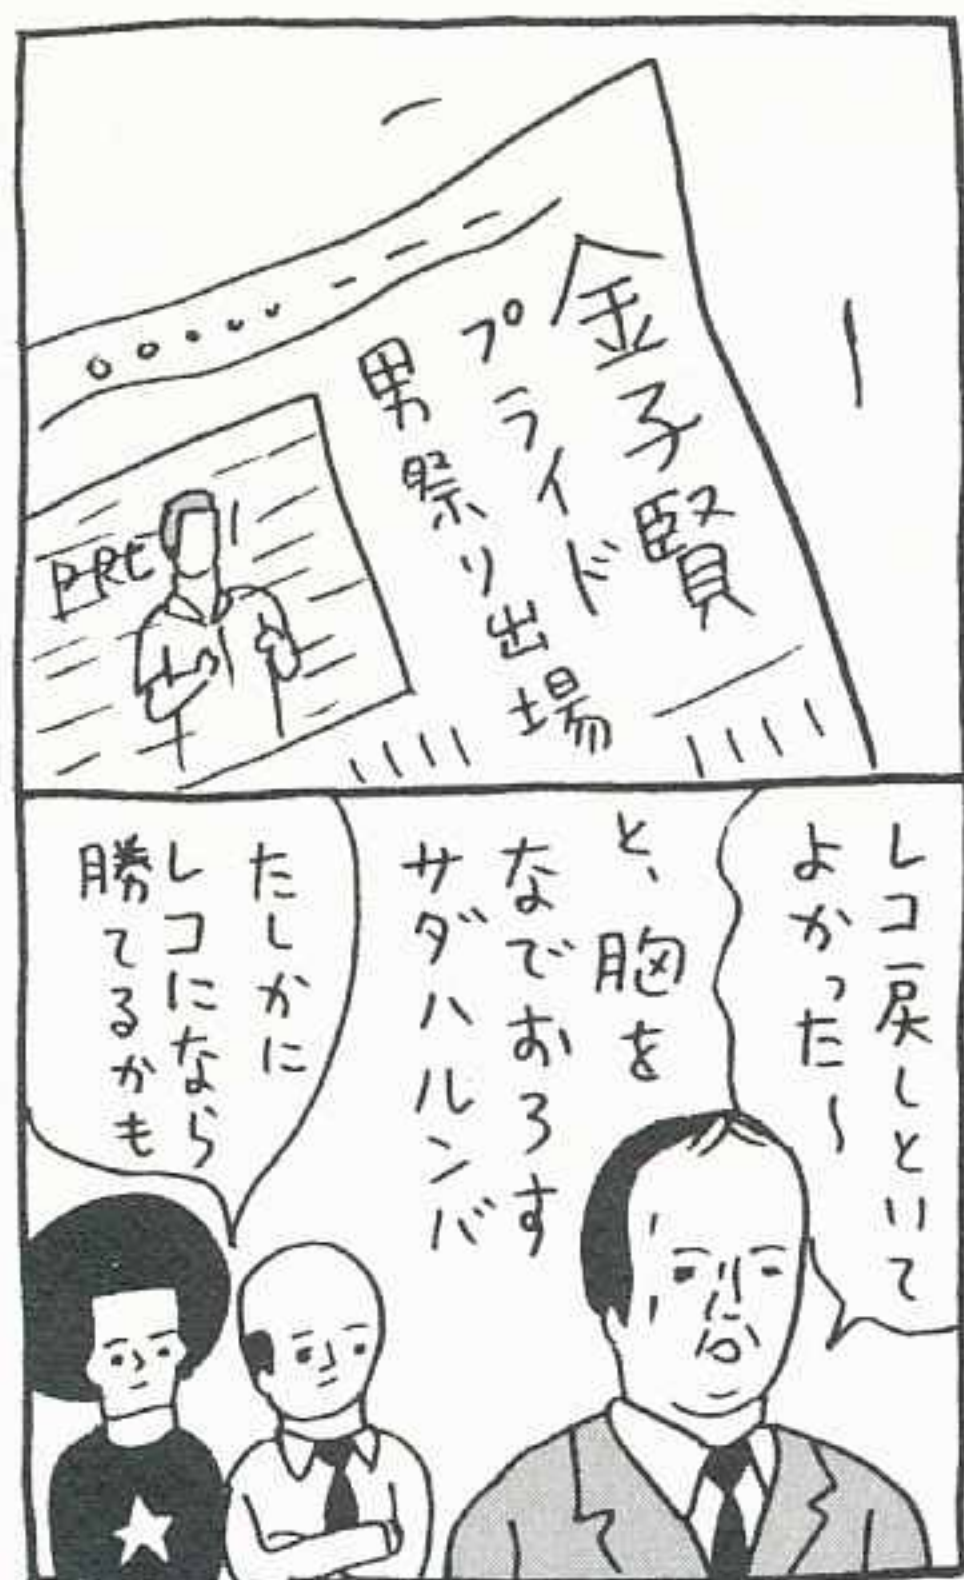 金子賢
プライド
男祭り出場
PRI
レコ戻しといて
よかった～
と、胸を
なでおろす
サダハルンバ
たしかに
レコになら
勝てるかも